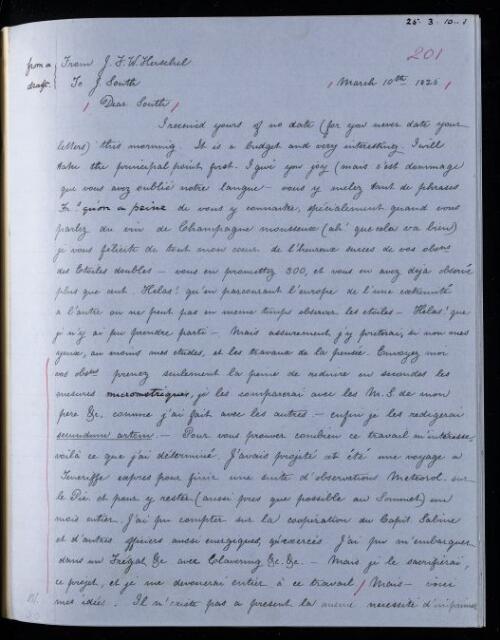 25-3-10-1
201
from a draft
From J. F. W. Herschel
To J. South
March 10th 1825
Dear South
I received yours of no date (for you never date your
letters) this morning. It is a budget and very interesting. I will
take the principal point first. I give you joy (mais c'est dommage
que vous avez oublié notre langue - vous y melez tant de phrases
Fr. qu'on a peine de vous y connaitre, spécialement quand vous
parlez du vin de Champagne mousseux (ah! que cela va bien)
je vous félicite de tout mon coeur de l'heureux succes de vos obsns
des Etoiles doubles - vous en promettez 300, et vous en avez deja observé
plus que cent. Hélas! qu'en parcourant l'europe de l'une extremité
a l'autre on ne peut pas en meme temps observer les etoiles - Hélas! que
je n'y ai pu prendre parti - Mais assurement j'y preterai, si non mes
yeux, au moins mes etudes, et les travaux de la pensée. Envoyez moi
vos obsns prenez seulement la peine de reduire en secondes les
mesures micrometriques, je les comparerai avec les M.S. de mon
pere &c. comme j'ai fait avec les autres - enfin je les redigerai
secundum artem. - Pour vous prouver combien ce travail m'interesse,
voilà ce que j'ai déterminé. J'avais projeté cet été une voyage a
Teneriffe expres pour finir une suite d'observations Meteorol. sur
le Pic et pour y rester (aussi pres que possible au Sommet) un
mois entier. J'ai pu compter sur la cooperation du Capit. Sabine
et d'autres officiers aussi energiques, exercés J'ai pu m'embarquer
dans un Frégat &c avec Clavering &c. &c. - Mais je le sacrifierai,
ce projet, et je me devouerai entier à ce travail Mais - voici
mes idées. Il n'existe pas a present la meme necessité d'imprimer